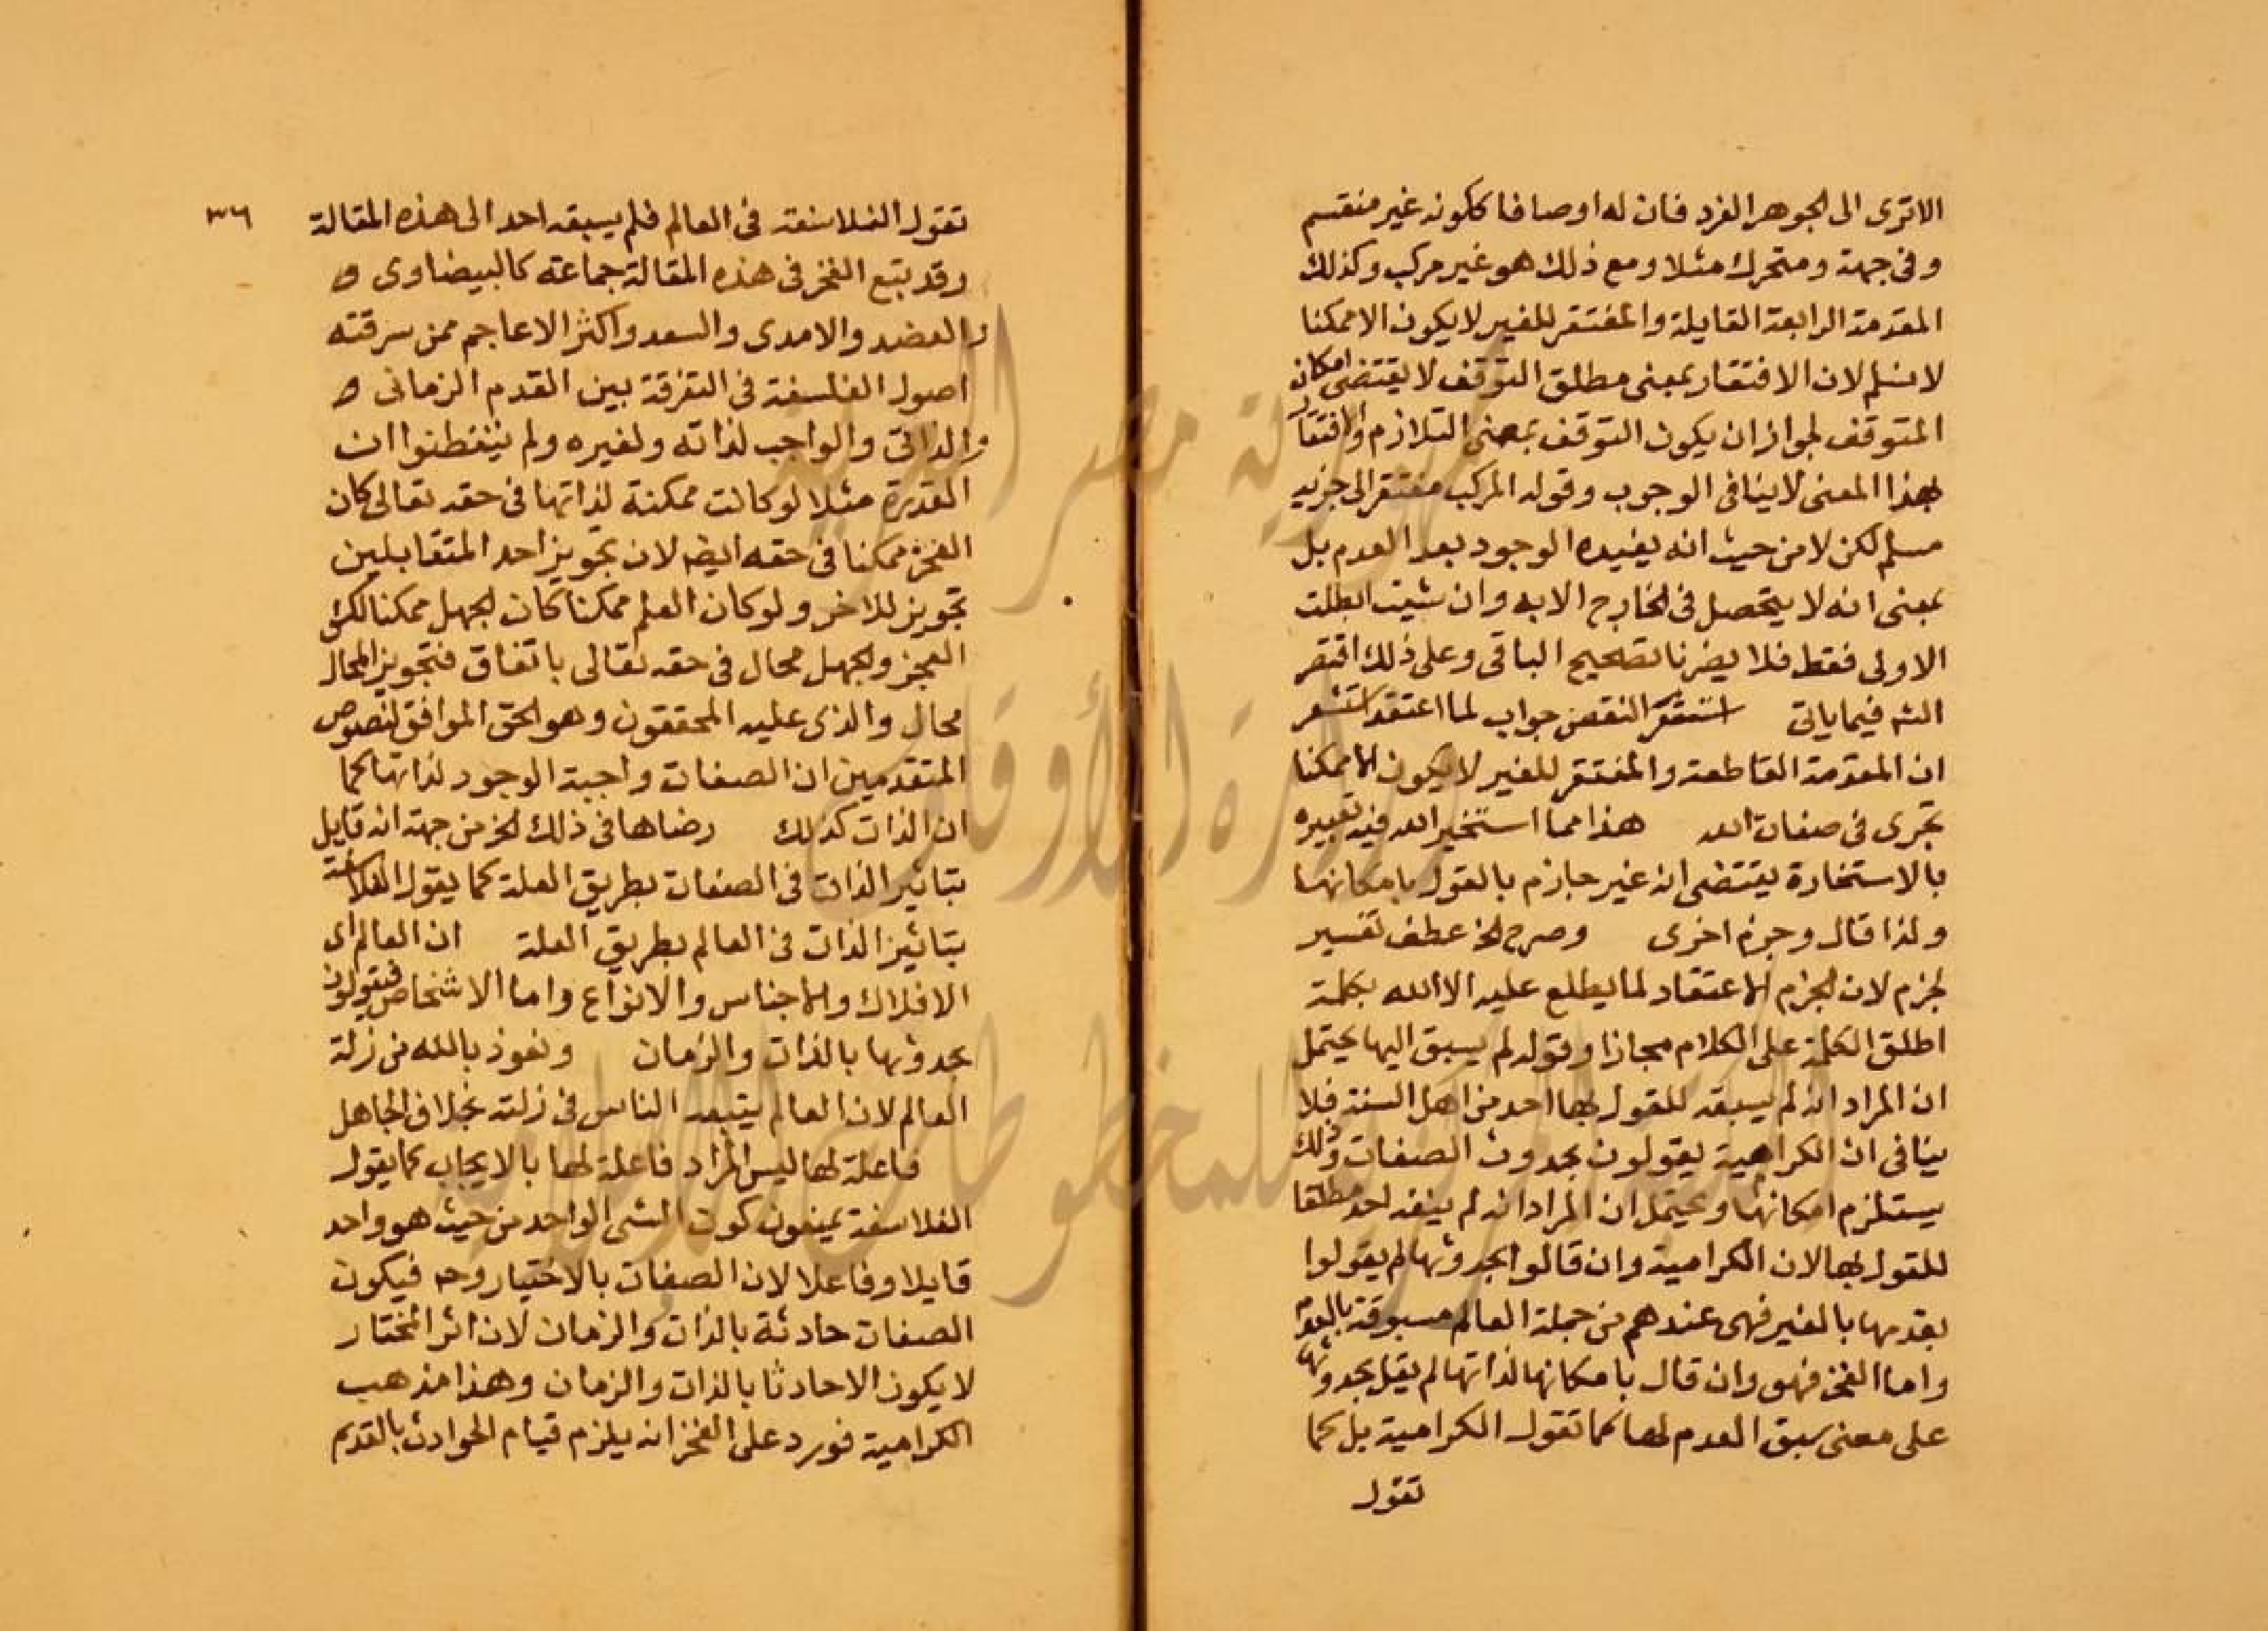 الاترى الى الجوهر الفرد فان له اوصافا ككونه غير منقسم
وفى جهة ومتحرك مثلا ومع ذلك هو غير مركب وكذلك
المقدمة الرابعة القايلة والمفتقر للغير لا يكون الا ممكنا
لا نسلم لان الافتقار بمعنى مطلق التوقف لا يقتضى امكان
المتوقف لجواز ان يكون التوقف بمعنى التلازم والافتقار
بهذا المعنى لا ينافى الوجوب وقوله المركب مفتقر الى جزيه
مسلم لكن لا من حيث انه يفيده الوجود بعد العدم بل
بمعنى انه لا يتحصل فى الخارج الا به وان شيت ابطلت
الاولى فقط فلا يضرنا تصحيح الباقى وعلى ذلك اقتصر
الشه فيما ياتى استشعر النقض جواب لما اعتقد استشعر
ان المقدمة القاطعة والمفتقر للغير لا يكون الا ممكنا
تجرى فى صفات الله هذا مما استخير الله فيه تعبيره
بالاستخارة يقتضى انه غير جازم بالقول بامكانها
ولذا قال وجزم اخرى وصرح الخ عطف تفسير
لجزم لان الجزم الاعتقاد لما يطلع عليه الا الله بكلمة
اطلق الكلمة على الكلام مجازا وقوله لم يسبق اليها يحتمل
ان المراد انه لم يسبقه للقول بها احد من اهل السنة فلا
ينافى ان الكرامية يقولون بحدوث الصفات وذلك
يستلزم امكانها ويحتمل ان المراد انه لم ينفه احد مطلقا
للقول بها لان الكرامية وان قالوا بحدوثها لم يقولوا
بقدمها بالغير فهى عندهم من جملة العالم مسبوقة بالعدم
واما الفخر فهو وان قال بامكانها لذاتها لم يقل بحدوثها
على معنى سبق العدم لها كما تقول الكرامية بل كما
تقول
٣٦
تقول الفلاسفة فى العالم فلم يسبقه احد الى هذه المقالة
وقد تبع الفخر فى هذه المقالة جماعة كالبيضاوى و
والعضد والامدى والسعد واكثر الاعاجم ممن سرقته
اصول الفلسفة فى التفرقة بين القدم الزمانى
والذاتى والواجب لذاته ولغيره ولم يتفطنوا ان
القدرة مثلا لو كانت ممكنة لذاتها فى حقه تعالى كان
العجز ممكنا فى حقه ايضا لان تجويز احد المتقابلين
تجويز للاخر ولو كان العلم ممكنا كان الجهل ممكنا لكن
العجز والجهل محال فى حقه تعالى باتفاق فتجويز المحال
محال والذى عليه المحققون وهو الحق الموافق لنصوص
المتقدمين ان الصفات واجبة الوجود لذاتها كما
ان الذات كذلك رضاها فى ذلك الخ من جهة انه قايل
بتاثير الذات فى الصفات بطريق العلة كما يقول الفلاسفة
بتاثير الذات فى العالم بطريق العلة ان العالم اى
الافلاك والاجناس والانواع واما الاشخاص فيقولون
بحدوثها بالذات والزمان ونعوذ بالله من زلة
العالم لان العالم يتبعه الناس فى زلته بخلاف الجاهل
فاعلة لها ليس المراد فاعلة لها بالايجاب كما يقول
الفلاسفة يمنعون كون الشى الواحد من حيث هو واحد
قايلا وفاعلا لان الصفات بالاختيار وح فيكون
الصفات حادثة بالذات والزمان لان اثر المختار
لا يكون الا حادثا بالذات والزمان وهذا مذهب
الكرامية فورد على الفخر انه يلزم قيام الحوادث بالقديم